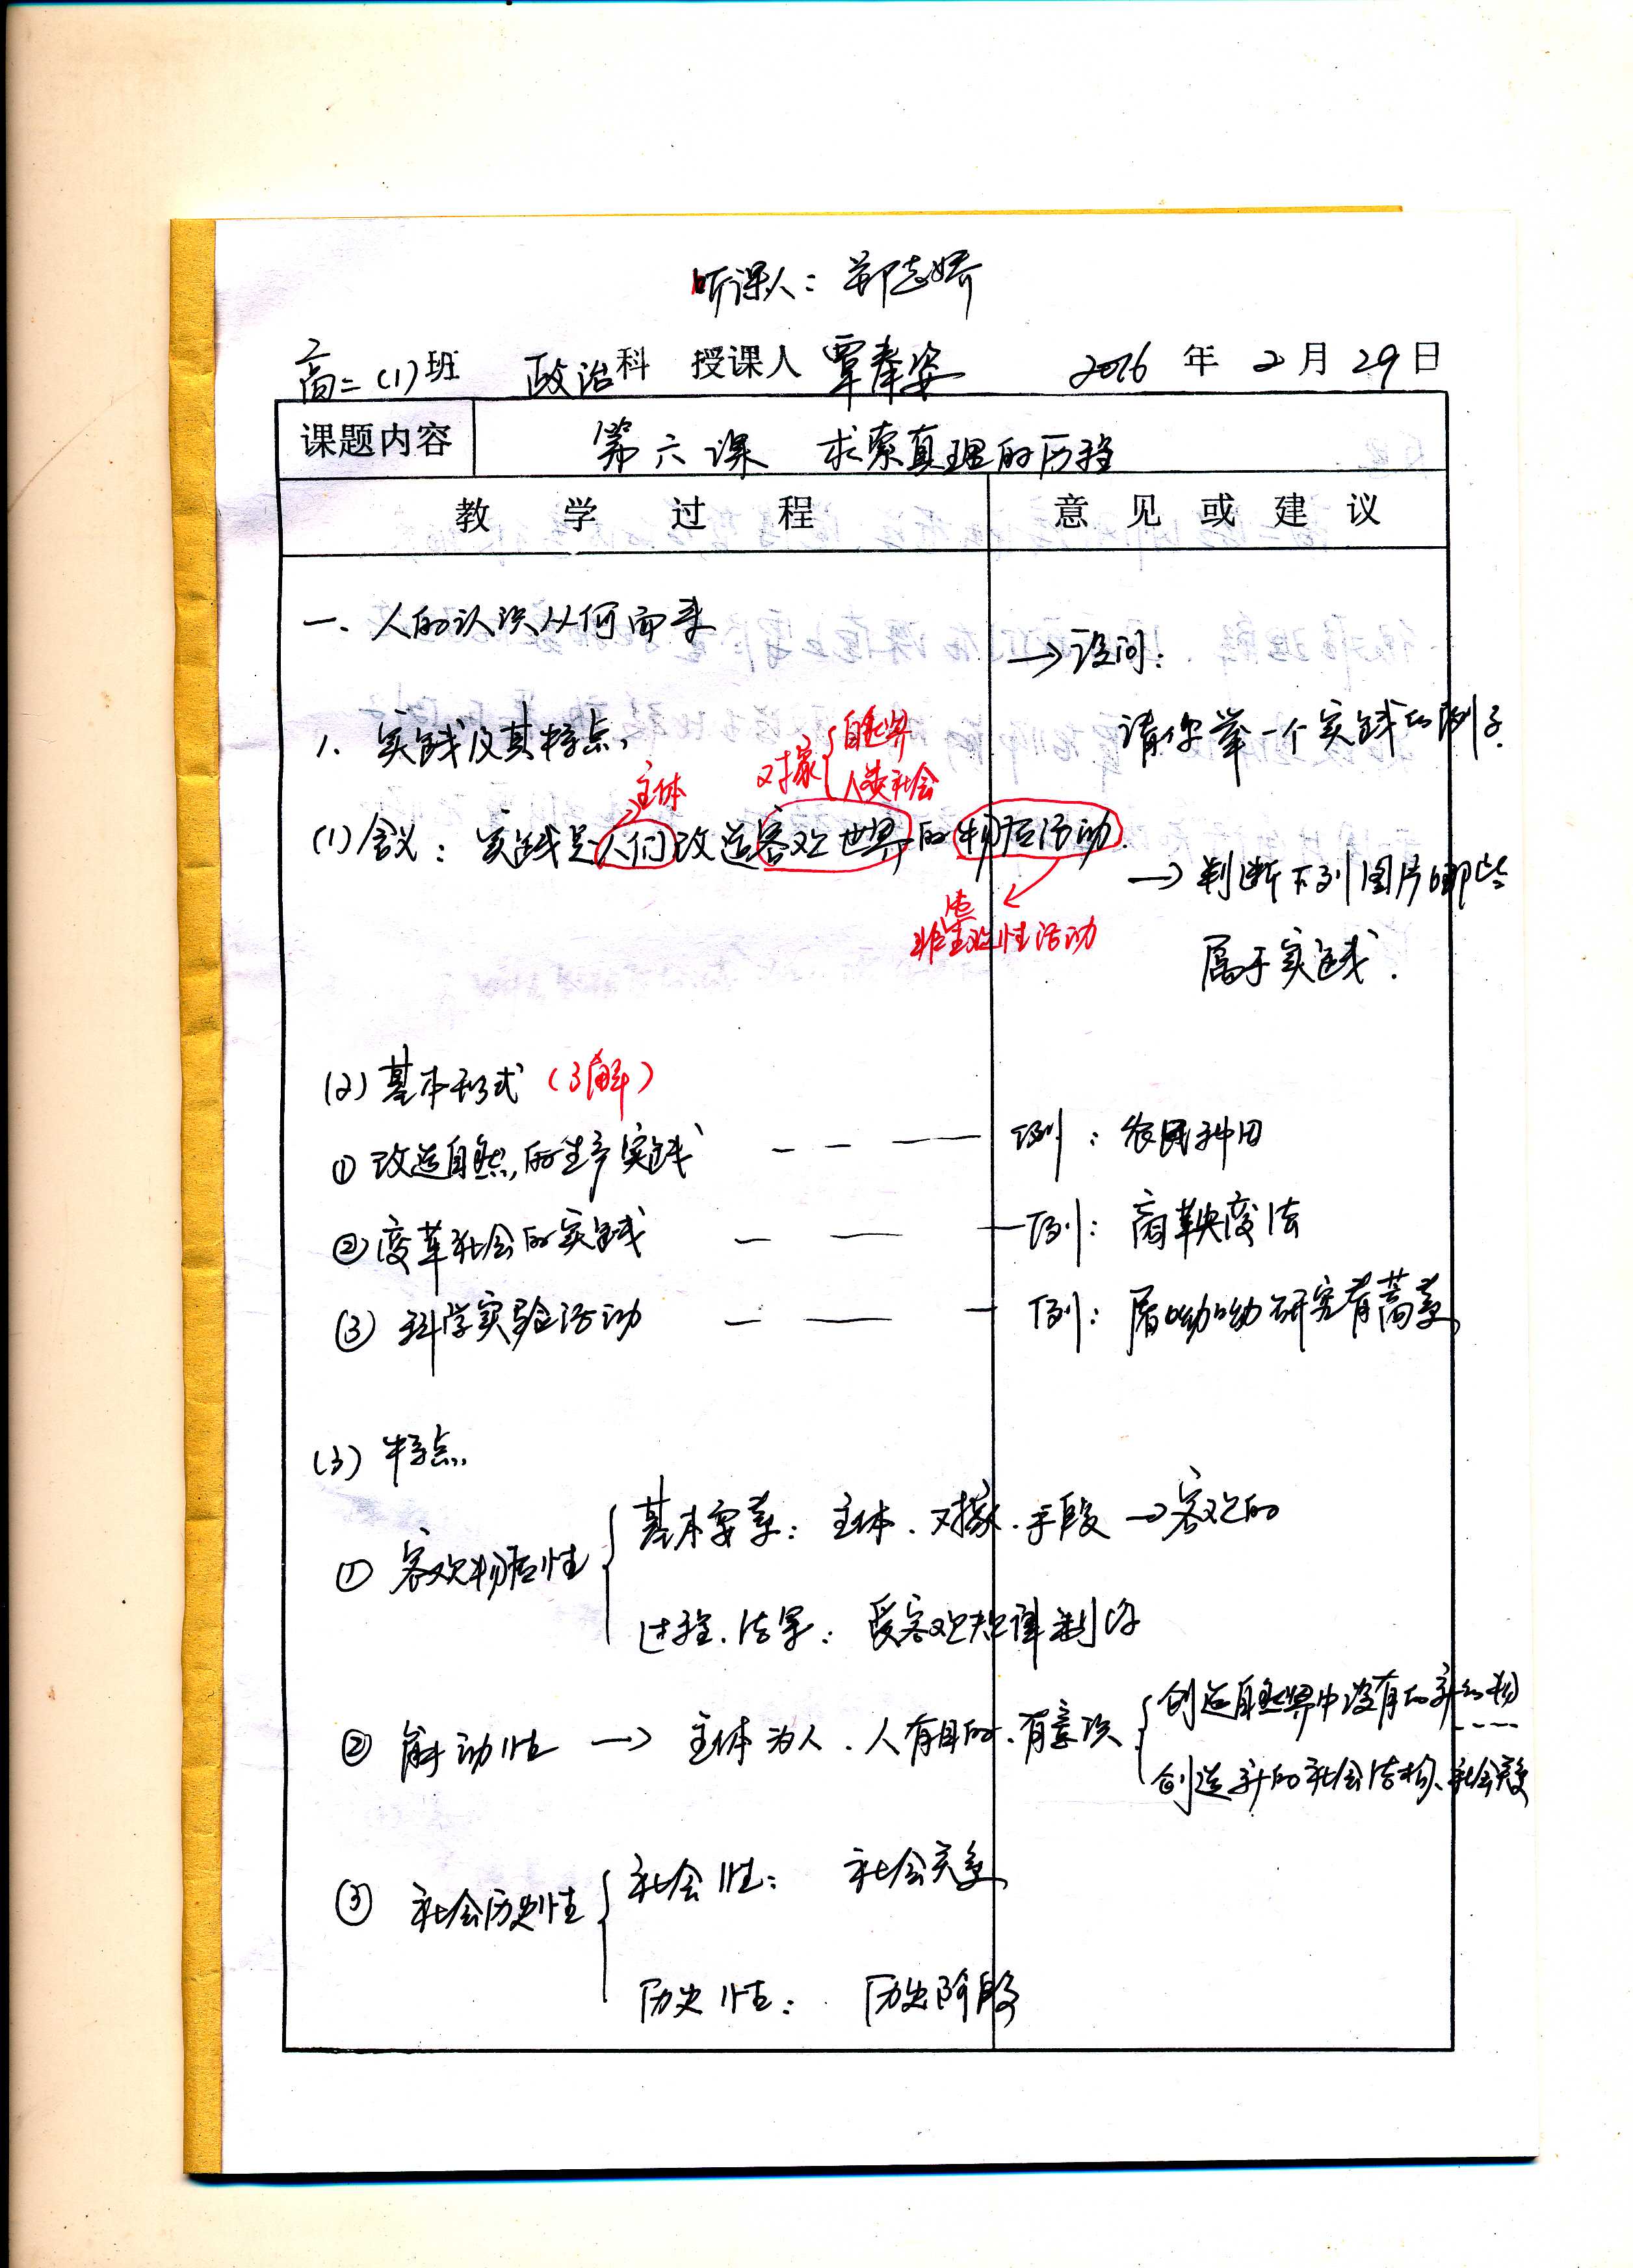 听课人：郭志娇
高二（1）班 政治科 授课人 覃奉姿 2016年2月29日
课题内容 第六课 求索真理的历程
教学过程 意见或建议
一、人的认识从何而来
→设问：
1、实践及其特点
请你举一个实践的例子.
主体 对象{自然界
人类社会
(1)含义：实践是人们改造客观世界的物质活动.
→判断下列图片哪些
属于实践.
非主观性活动
(2)基本形式（了解）
①改造自然的生产实践 — — — — 例：农民种田
②变革社会的实践 — — — 例：商鞅变法
③科学实验活动 — — — 例：屠呦呦研究青蒿素
(3)特点
①客观物质性{基本要素：主体、对象、手段→客观的
过程、结果：受客观规律制约
②能动性→主体为人、人有目的、有意识{创造自然界中没有的新事物
创造新的社会结构、社会关系
③社会历史性{社会性：社会关系
历史性：历史阶段